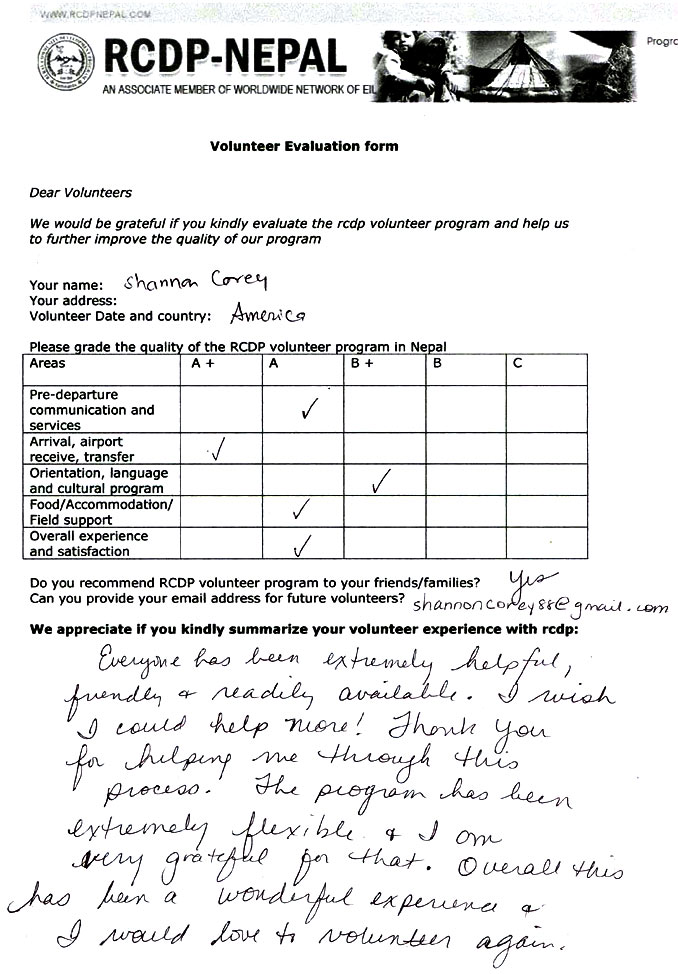 WWW.RCDPNEPAL.COM
RCDP-NEPAL
AN ASSOCIATE MEMBER OF WORLDWIDE NETWORK OF EIL
Progra
Volunteer Evaluation form
Dear Volunteers
We would be grateful if you kindly evaluate the rcdp volunteer program and help us
to further improve the quality of our program
Your name: Shannon Corey
Your address:
Volunteer Date and country: America
Please grade the quality of the RCDP volunteer program in Nepal
Areas A + A B + B C
Pre-departure
communication and
services ✓
Arrival, airport
receive, transfer ✓
Orientation, language
and cultural program ✓
Food/Accommodation/
Field support ✓
Overall experience
and satisfaction ✓
Do you recommend RCDP volunteer program to your friends/families? Yes
Can you provide your email address for future volunteers? shannoncorey88@gmail.com
We appreciate if you kindly summarize your volunteer experience with rcdp:
Everyone has been extremely helpful,
friendly & readily available. I wish
I could help more! Thank you
for helping me through this
process. The program has been
extremely flexible & I am
very grateful for that. Overall this
has been a wonderful experience &
I would love to volunteer again.